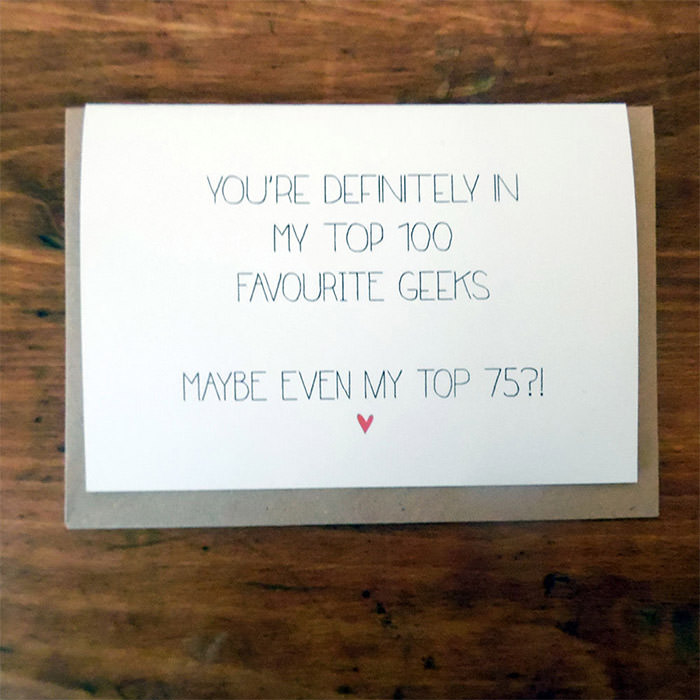 YOU'RE DEFINITELY IN
MY TOP 100
FAVOURITE GEEKS
MAYBE EVEN MY TOP 75?!